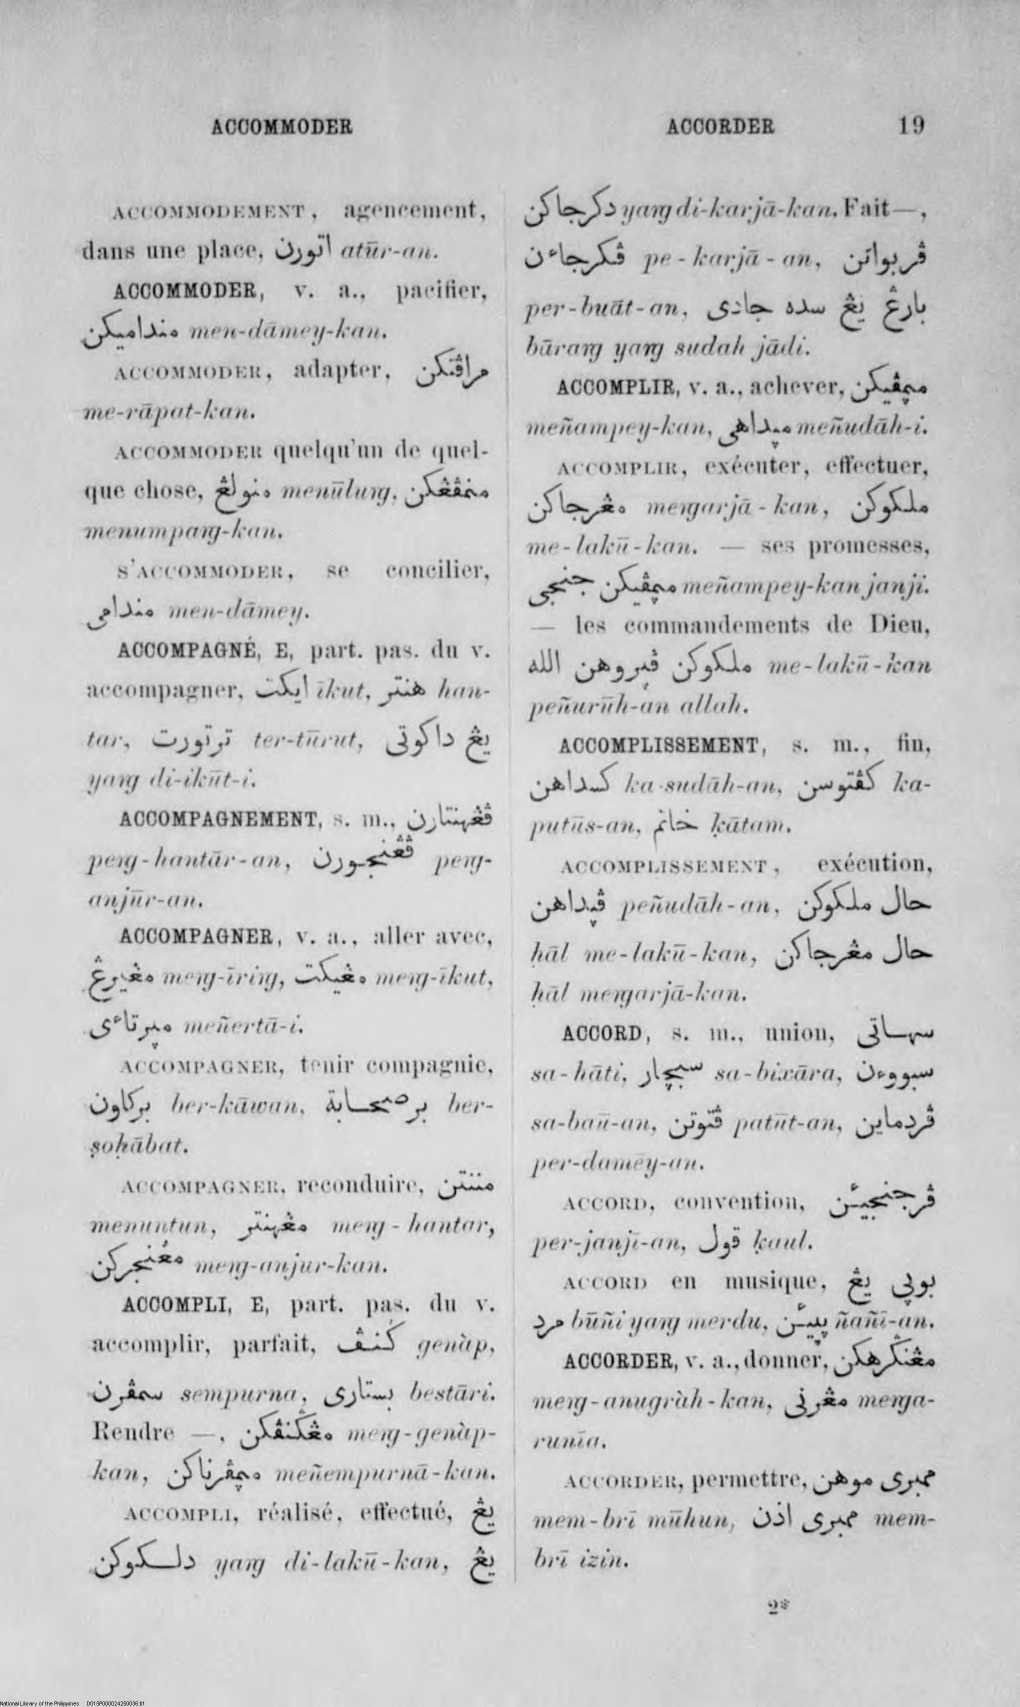 ACCOMMODER
ACCORDER 19
ACCOMMODEMENT, agencement,
dans une place, اتورن atūr-an.
ACCOMMODER, v. a., pacifier,
منداميكن men-dāmey-kan.
ACCOMMODER, adapter, مراڤتكن
me-rāpat-kan.
ACCOMMODER quelqu'un de quel-
que chose, منولڠ menūluṅg, منمڤڠكن
menumpaṅg-kan.
S'ACCOMMODER, se concilier,
مندامي men-dāmey.
ACCOMPAGNÉ, E, part. pas. du v.
accompagner, ايكت īkut, هنتر han-
tar, ترتورت ter-tūrut, يڠ داكوتي
yaṅg di-ikūt-i.
ACCOMPAGNEMENT, s. m., ڤڠهنتارن
peṅg-hantār-an, ڤڠنجورن peṅg-
anjūr-an.
ACCOMPAGNER, v. a., aller avec,
مڠيرڠ meṅg-īriṅg, مڠيكت meṅg-īkut,
مڽرتاءي meñertā-i.
ACCOMPAGNER, tenir compagnie,
بركاون ber-kāwan, برصحابة ber-
ṣoḥābat.
ACCOMPAGNER, reconduire, مننتن
menuntun, مڠهنتر meṅg-hantar,
مڠنجركن meṅg-anjur-kan.
ACCOMPLI, E, part. pas. du v.
accomplir, parfait, كنڤ genàp,
سمڤرن sempurna, بستاري bestāri.
Rendre —, مڠكنڤكن meṅg-genàp-
kan, مڽمڤرناكن meñempurnā-kan.
ACCOMPLI, réalisé, effectué, يڠ
دلكوكن yaṅg di-lakū-kan, يڠ
دكرجاكن yaṅg di-karjā-kan. Fait —,
ڤكرجاءن pe-karjā-an, ڤربواتن
per-buāt-an, بارڠ يڠ سده جادي
bāraṅg yaṅg sudah jādi.
ACCOMPLIR, v. a., achever, مڽمڤيكن
meñampey-kan, مڽداهي meñudāh-i.
ACCOMPLIR, exécuter, effectuer,
مڠرجاكن meṅgarjā-kan, ملكوكن
me-lakū-kan. — ses promesses,
مڽمڤيكن جنجي meñampey-kan janji.
— les commandements de Dieu,
ملكوكن ڤڽروهن الله me-lakū-kan
peñurūh-an allah.
ACCOMPLISSEMENT, s. m., fin,
كسداهن ka-sudāh-an, كڤتوسن ka-
putūs-an, خاتم ḳātam.
ACCOMPLISSEMENT, exécution,
ڤڽداهن peñudāh-an, حال ملكوكن
ḥāl me-lakū-kan, حال مڠرجاكن
ḥāl meṅgarjā-kan.
ACCORD, s. m., union, سهاتي
sa-hāti, سبچار sa-bixāra, سبووءن
sa-baū-an, ڤتوتن patūt-an, ڤردماين
per-damēy-an.
ACCORD, convention, ڤرجنجيئن
per-janjī-an, قول ḳaul.
ACCORD en musique, بوڽي يڠ
مرد būñi yaṅg merdu, ڽڽيئن ñañī-an.
ACCORDER, v. a., donner, مڠنڬرهكن
meṅg-anugràh-kan, مڠرني meṅga-
runīa.
ACCORDER, permettre, ممبري موهن
mem-brī mūhun, ممبري اذن mem-
brī izin.
2*
National Library of the Philippines